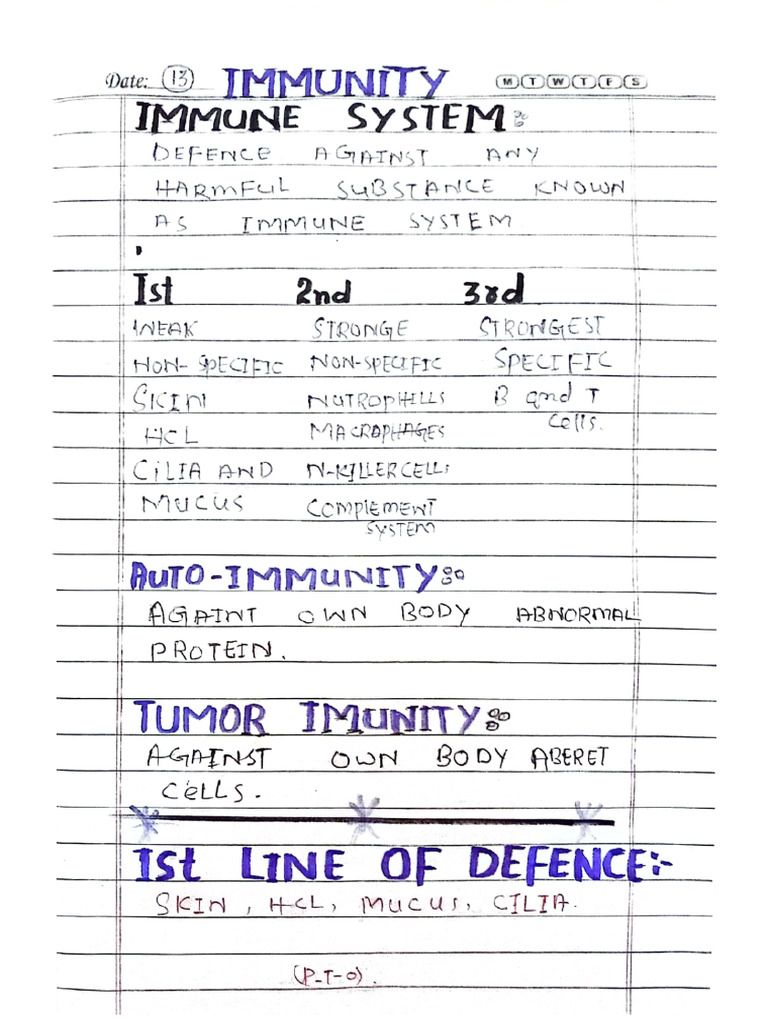 Date: 13 IMMUNITY M T W T F S
IMMUNE SYSTEM:
DEFENCE AGAINST ANY
HARMFUL SUBSTANCE KNOWN
AS IMMUNE SYSTEM
Ist 2nd 3rd
WEAK STRONGE STRONGEST
NON-SPECIFIC NON-SPECIFIC SPECIFIC
SKIN NUTROPHILLS B and T
HCL MACROPHAGES cells.
CILIA AND N-KILLER CELLS
MUCUS COMPlEMENT
SYSTEM
AUTO-IMMUNITY:
AGAINT OWN BODY ABNORMAL
PROTEIN.
TUMOR IMUNITY:
AGAINST OWN BODY ABERET
CELLS.
Ist LINE OF DEFENCE:-
SKIN, HCL, MUCUS, CILIA.
(P-T-O).